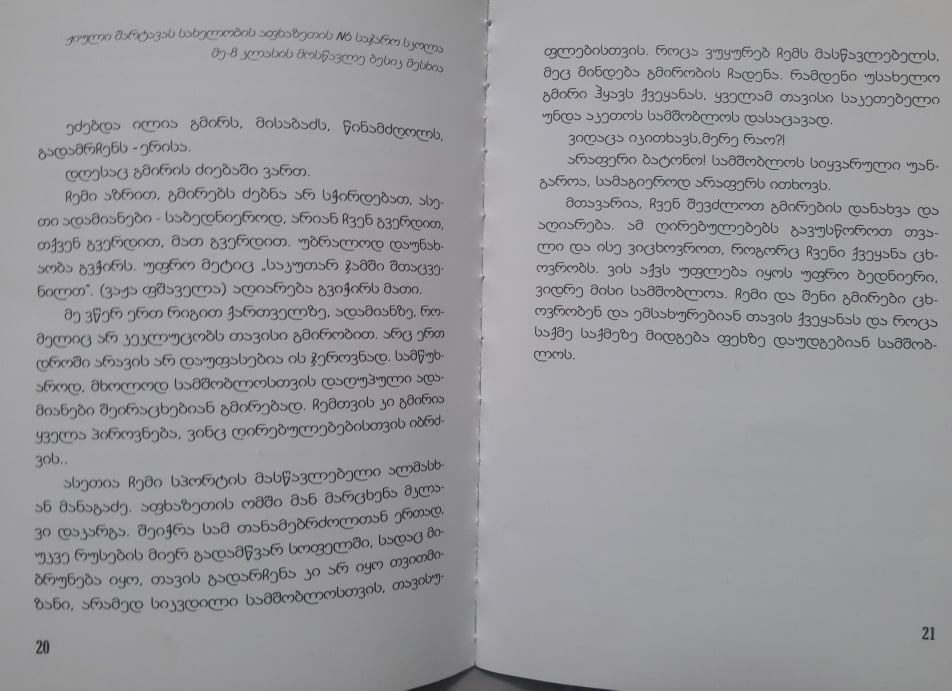 ჟიული შარტავას სახელობის აფხაზეთის N6 საჯარო სკოლა
მე-8 კლასის მოსწავლე ბესიკ მესხია
ეძებდა ილია გმირს, მისაბაძს, წინამძღოლს,
გადამრჩენს - ერისა.
დღესაც გმირის ძიებაში ვართ.
ჩემი აზრით, გმირებს ძებნა არ სჭირდებათ, ასე-
თი ადამიანები - საბედნიეროდ, არიან ჩვენ გვერდით,
თქვენ გვერდით, მათ გვერდით. უბრალოდ დაუნახ-
აობა გვჭირს. უფრო მეტიც „საკუთარ ჯამში მთაცვე-
ნილთ“. (ვაჟა ფშაველა) აღიარება გვიჭირს მათი.
მე ვწერ ერთ რიგით ქართველზე, ადამიანზე, რო-
მელიც არ კეკლუცობს თავისი გმირობით. არც ერთ
დროში არავის არ დაუფასებია ის ჯეროვნად. სამწუხ-
აროდ, მხოლოდ სამშობლოსთვის დაღუპული ადა-
მიანები შეირაცხებიან გმირებად. ჩემთვის კი გმირია
ყველა პიროვნება, ვინც ღირებულებებისთვის იბრძ-
ვის..
ასეთია ჩემი სპორტის მასწავლებელი ალმასხ-
ან მანაგაძე. აფხაზეთის ომში მან მარცხენა მკლა-
ვი დაკარგა. შეიჭრა სამ თანამებრძოლთან ერთად,
უკვე რუსების მიერ გადამწვარ სოფელში, სადაც მი-
ბრუნება იყო, თავის გადარჩენა კი არ იყო თვითმი-
ზანი, არამედ სიკვდილი სამშობლოსთვის, თავისუ-
20
ფლებისთვის. როცა ვუყურებ ჩემს მასწავლებელს,
მეც მინდება გმირობის ჩადენა. რამდენი უსახელო
გმირი ჰყავს ქვეყანას, ყველამ თავისი საკეთებელი
უნდა აკეთოს სამშობლოს დასაცავად.
ვიღაცა იკითხავს,მერე რაო?!
არაფერი ბატონო! სამშობლოს სიყვარული უან-
გაროა, სამაგიეროდ არაფერს ითხოვს.
მთავარია, ჩვენ შევძლოთ გმირების დანახვა და
აღიარება. ამ ღირებულებებს გავუსწოროთ თვა-
ლი და ისე ვიცხოვროთ, როგორც ჩვენი ქვეყანა ცხ-
ოვრობს. ვის აქვს უფლება იყოს უფრო ბედნიერი,
ვიდრე მისი სამშობლოა. ჩემი და შენი გმირები ცხ-
ოვრობენ და ემსახურებიან თავის ქვეყანას და როცა
საქმე საქმეზე მიდგება ფეხზე დაუდგებიან სამშობ-
ლოს.
21